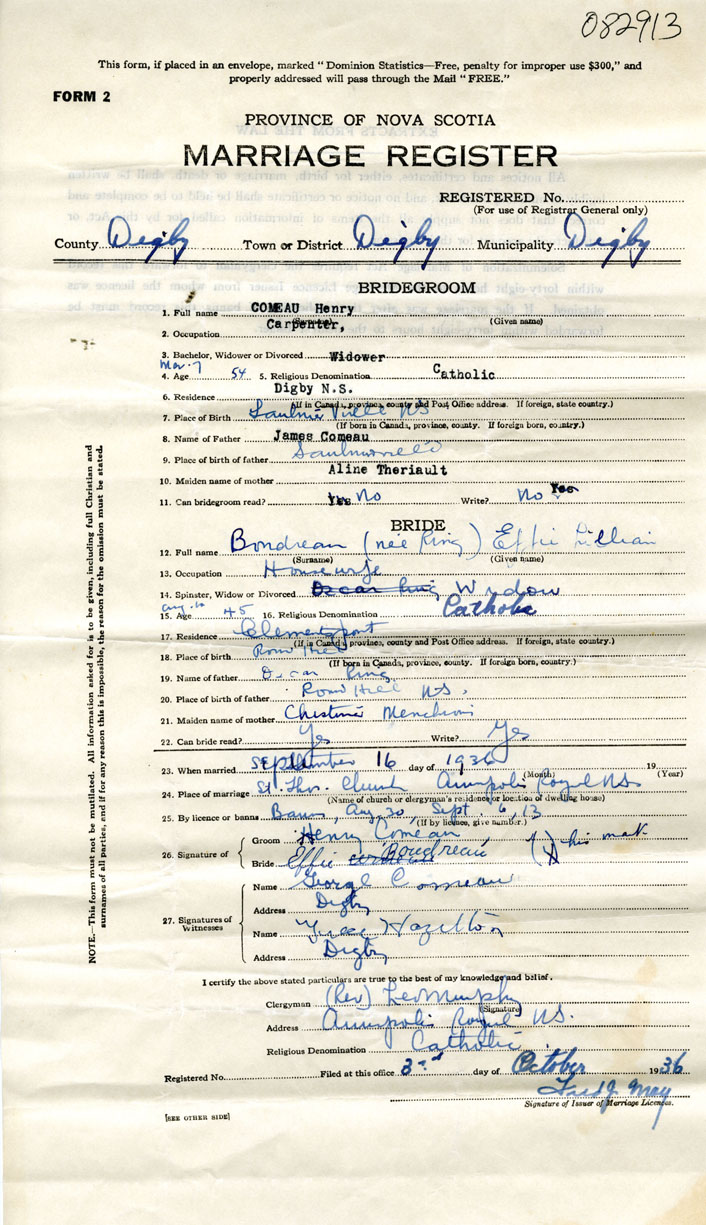 082913
This form, if placed in an envelope, marked “Dominion Statistics—Free, penalty for improper use $300,” and
properly addressed will pass through the Mail “FREE.”
FORM 2
PROVINCE OF NOVA SCOTIA
MARRIAGE REGISTER
REGISTERED No.
(For use of Registrar General only)
County Digby Town or District Digby Municipality Digby
BRIDEGROOM
1. Full name COMEAU Henry
(Surname) (Given name)
2. Occupation Carpenter,
3. Bachelor, Widower or Divorced Widower
4. Age Mar. 7 54 5. Religious Denomination Catholic
6. Residence Digby N.S.
(If in Canada, province, county and Post Office address. If foreign, state country.)
7. Place of Birth Saulnierville NS
(If born in Canada, province, county. If foreign born, country.)
8. Name of Father James Comeau
9. Place of birth of father
10. Maiden name of mother Aline Theriault
11. Can bridegroom read? Yes No Write? No Yes
BRIDE
12. Full name Boudreau (née Ring) Effie Lillian
(Surname) (Given name)
13. Occupation Housewife
14. Spinster, Widow or Divorced Oscar Ring Widow
15. Age Aug. 45 16. Religious Denomination Catholic
17. Residence Clementsport
(If in Canada, province, county and Post Office address. If foreign, state country.)
18. Place of birth
(If born in Canada, province, county. If foreign born, country.)
19. Name of father Oscar Ring
20. Place of birth of father Hill NS.
21. Maiden name of mother
22. Can bride read? Yes Write? Yes
23. When married September 16 day of 1936 19
(Month) (Year)
24. Place of marriage St. Thos. Church Annapolis Royal NS
(Name of church or clergyman's residence or location of dwelling house)
25. By licence or banns Banns, Aug. 30, Sept. 6, 13
(If by licence, give number.)
26. Signature of
Groom Henry Comeau, (X) his mark
Bride Effie Boudreau
27. Signatures of Witnesses
Name George Comeau
Address Digby
Name Hazelton
Address Digby
I certify the above stated particulars are true to the best of my knowledge and belief.
Clergyman (Rev) Leo Murphy
(Signature)
Address Annapolis Royal NS.
Religious Denomination Catholic
Registered No. Filed at this office 3rd day of October 1936
Fred J. May
Signature of Issuer of Marriage Licences.
[SEE OTHER SIDE]
NOTE.—This form must not be mutilated. All information asked for is to be given, including full Christian and
surnames of all parties, and if for any reason this is impossible, the reason for the omission must be stated.